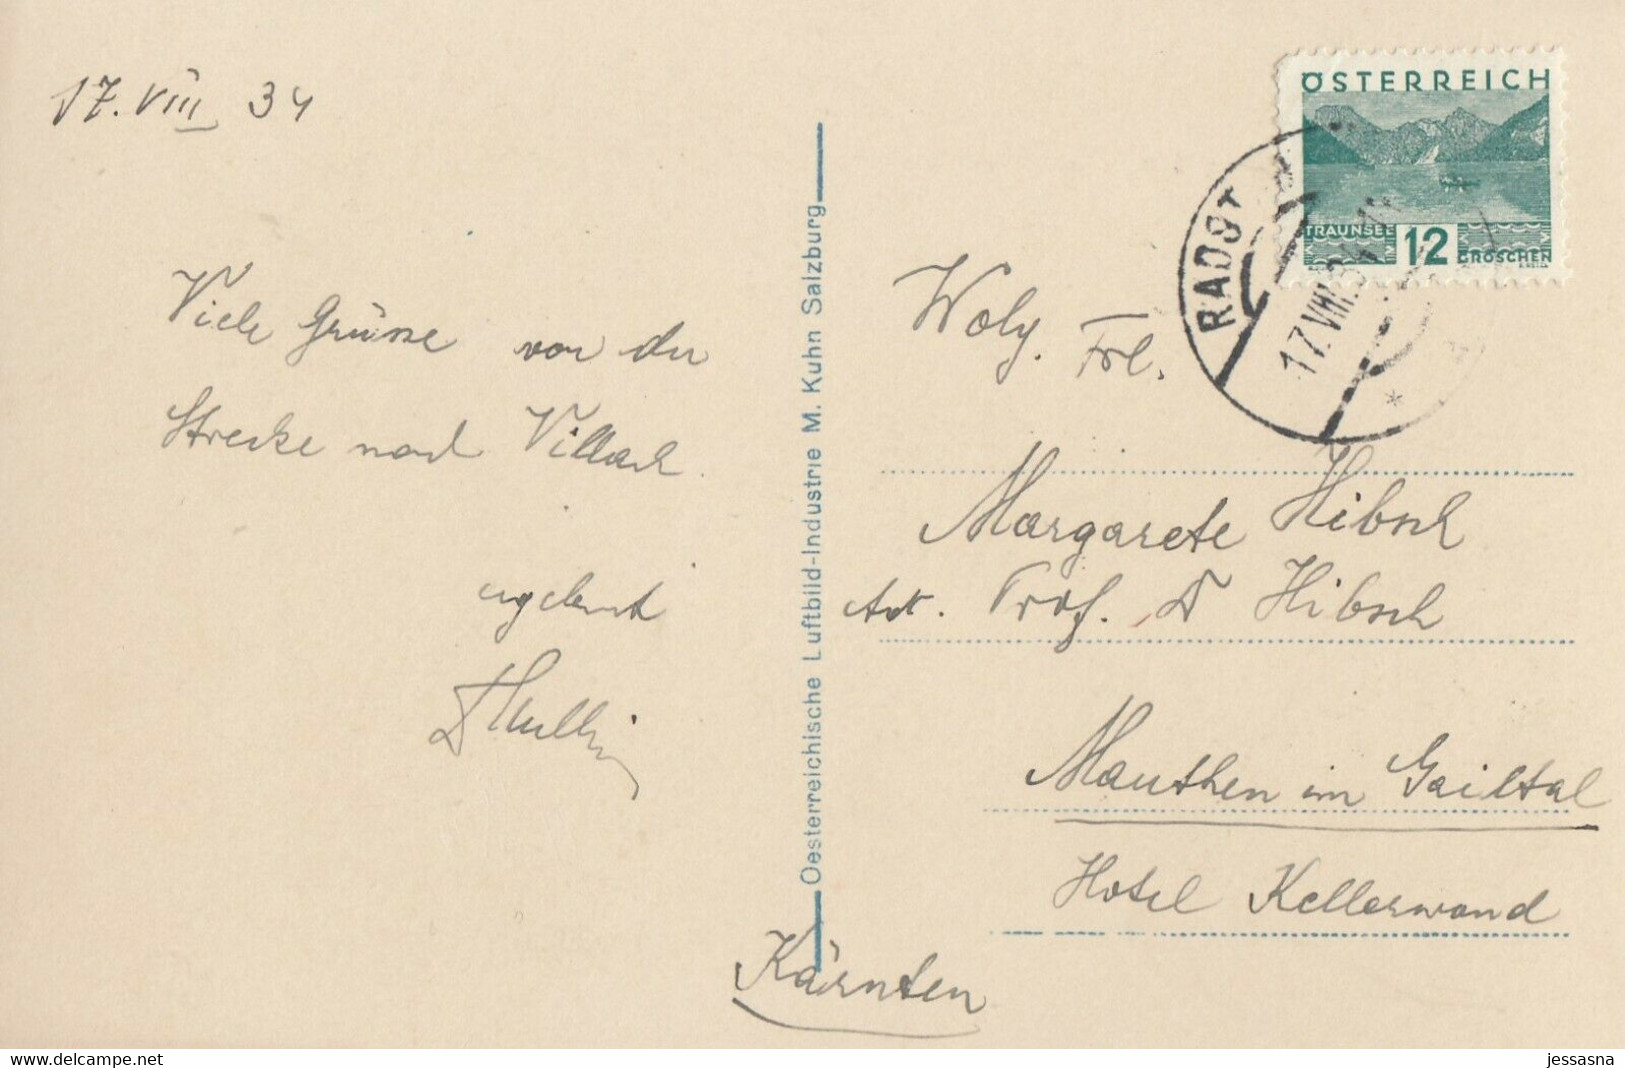 17. VIII 34
Viele Grüsse von der
Strecke nach Villach.
ergebenst
ÖSTERREICH
TRAUNSEE 12 GROSCHEN
RADST
17.VIII.34
Oesterreichische Luftbild-Industrie M. Kuhn Salzburg
Wolg. Frl.
Margarete Hibsch
Adr. Prof. Dr Hibsch
Mauthen im Gailtal
Hotel Kellerwand
Kärnten
www.delcampe.net
jessasna